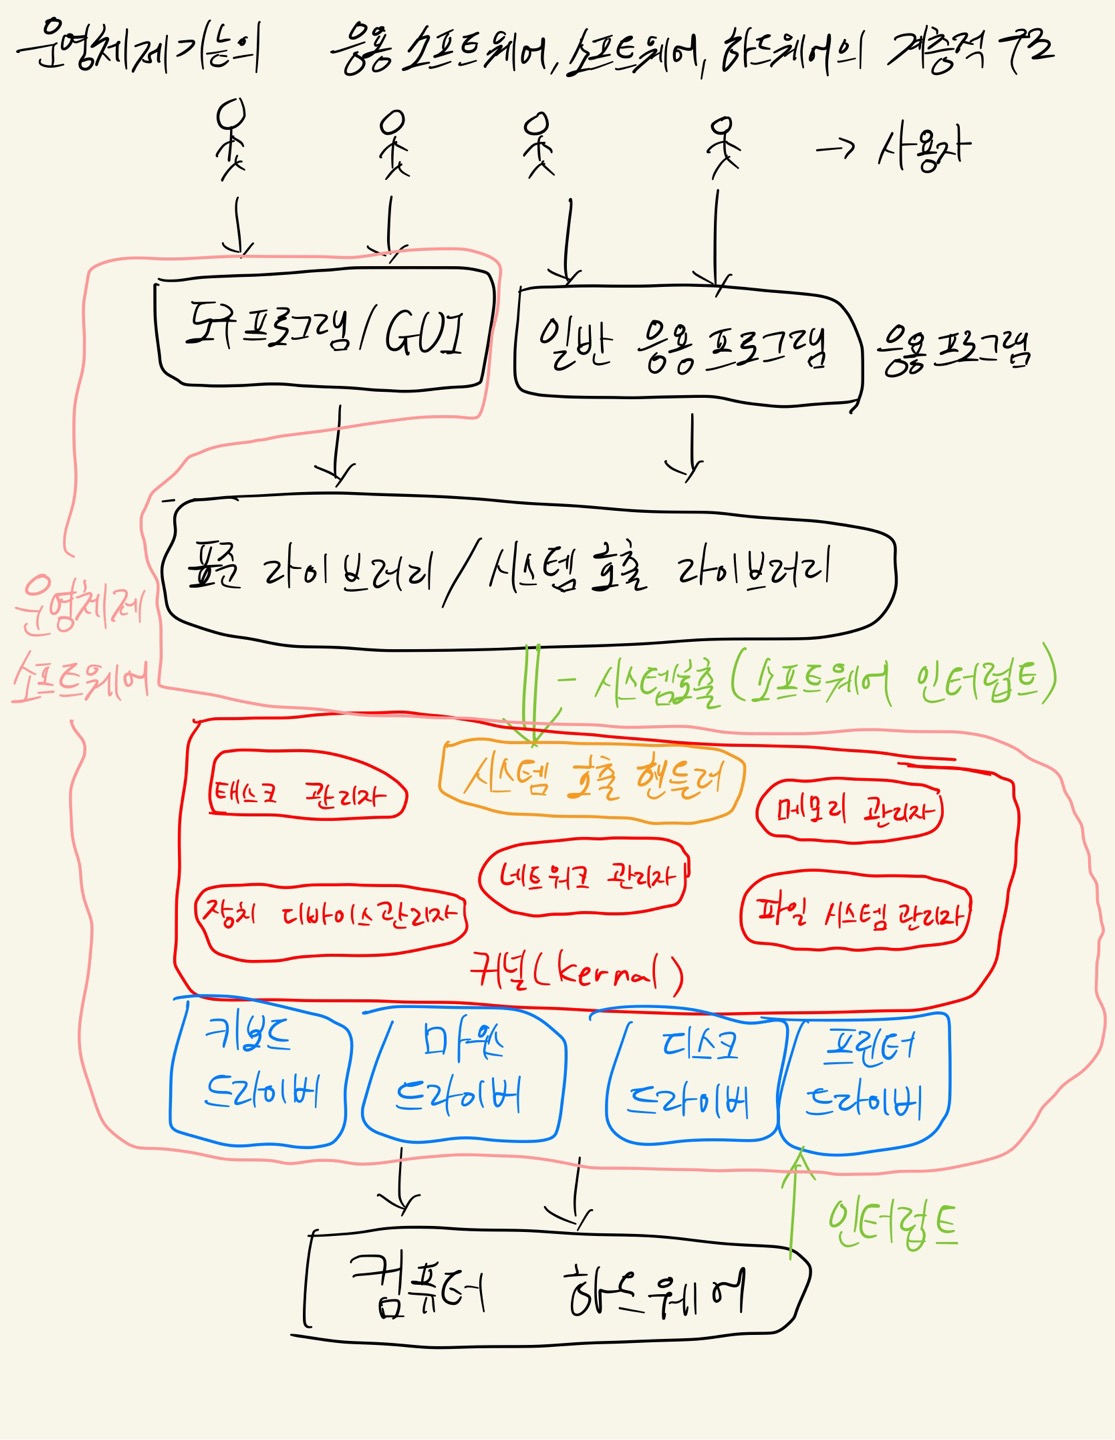 운영체제기능의 응용 소프트웨어, 소프트웨어, 하드웨어의 계층적 구조
→ 사용자
도구프로그램/GUI
일반 응용프로그램
응용프로그램
표준 라이브러리/시스템 호출 라이브러리
운영체제
소프트웨어
- 시스템호출(소프트웨어 인터럽트)
시스템 호출 핸들러
태스크 관리자
메모리 관리자
네트워크 관리자
장치 디바이스관리자
파일 시스템 관리자
커널(kernal)
키보드
드라이버
마우스
드라이버
디스크
드라이버
프린터
드라이버
인터럽트
컴퓨터 하드웨어